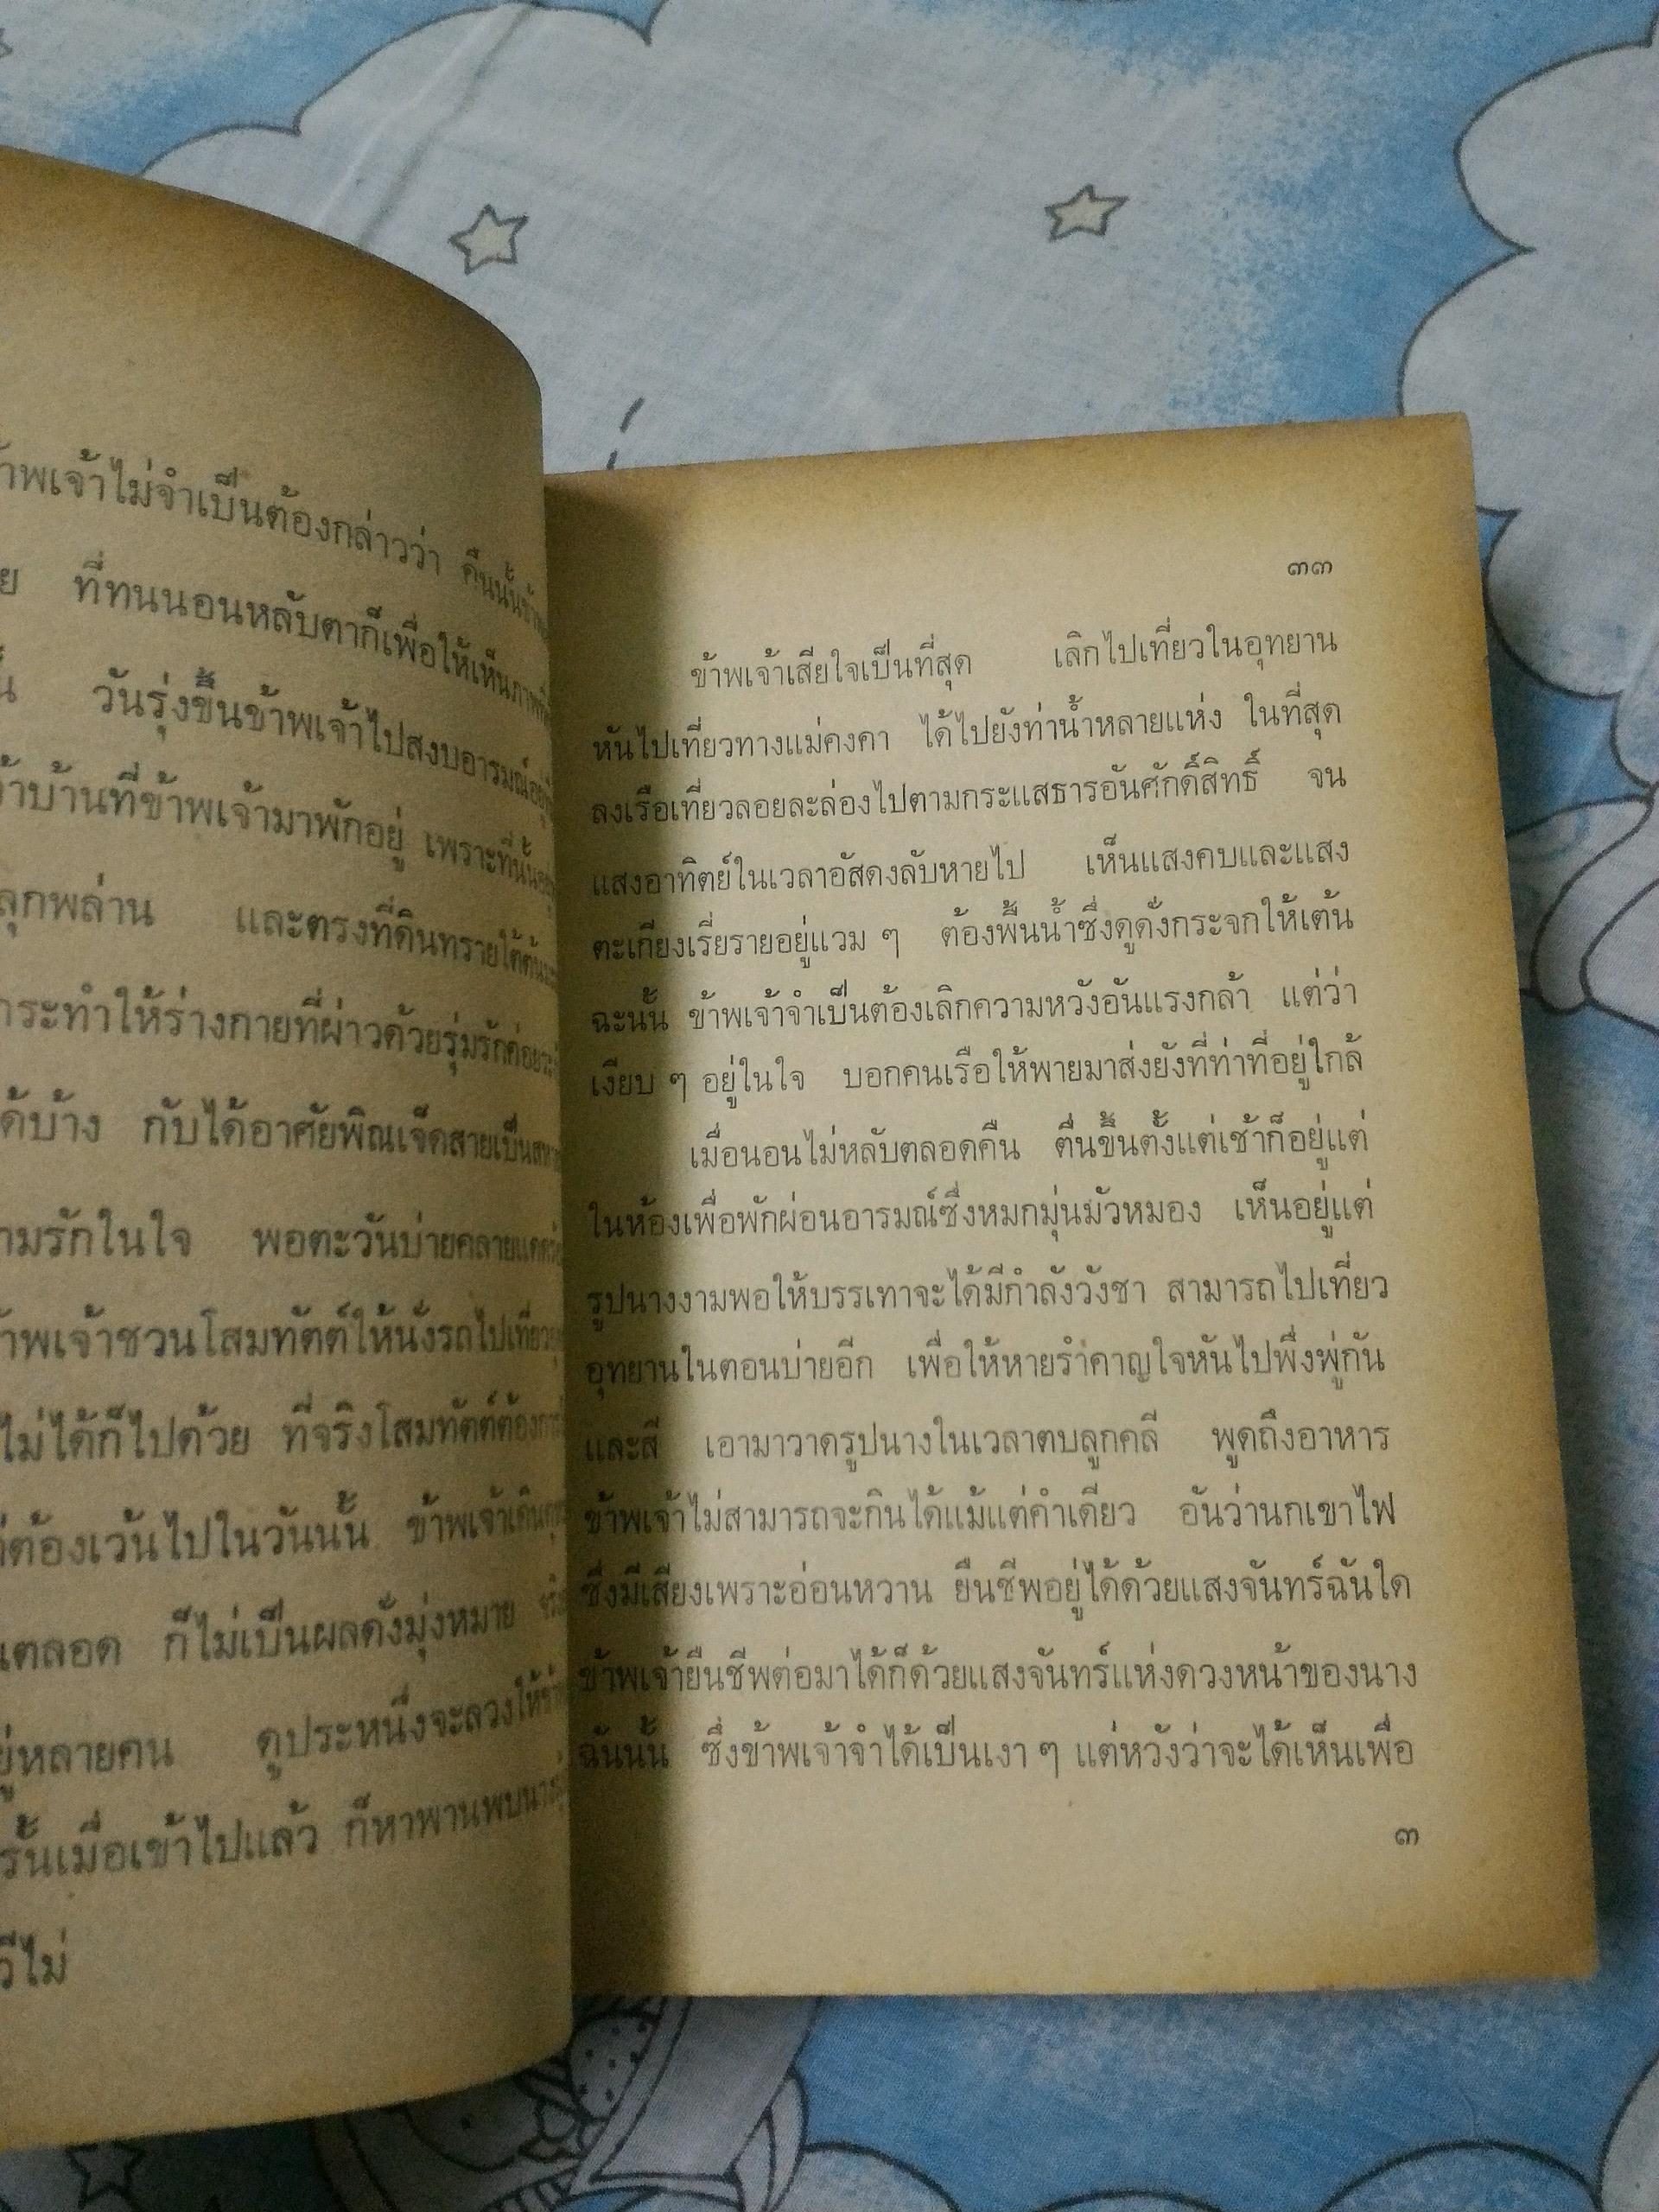 าพเจ้าไม่จำเป็นต้องกล่าวว่า คืนนั้น
ที่ทนนอนหลับตาก็เพื่อให้เห็นภาพ
วันรุ่งขึ้นข้าพเจ้าไปสงบอารมณ์อยู่
บ้านที่ข้าพเจ้ามาพักอยู่ เพราะที่นั้น
ลุกพล่าน และตรงที่ดินทรายใต้ต้น
กระทำให้ร่างกายที่ผ่าวด้วยรุ่มรักค่อย
ได้บ้าง กับได้อาศัยพิณเจ็ดสายเป็น
ามรักในใจ พอตะวันบ่ายคลายแดด
าพเจ้าชวนโสมทัตต์ให้นั่งรถไปเที่ยว
ไม่ได้ก็ไปด้วย ที่จริงโสมทัตต์ต้องการ
ต้องเว้นไปในวันนั้น ข้าพเจ้าเดิน
ตลอด ก็ไม่เป็นผลดั่งมุ่งหมาย
อยู่หลายคน ดูประหนึ่งจะลวงให้
รั้นเมื่อเข้าไปแล้ว ก็หาพานพบนาง
วีไม่
๓๓
ข้าพเจ้าเสียใจเป็นที่สุด เลิกไปเที่ยวในอุทยาน
หันไปเที่ยวทางแม่คงคา ได้ไปยังท่าน้ำหลายแห่ง ในที่สุด
ลงเรือเที่ยวลอยละล่องไปตามกระแสธารอันศักดิ์สิทธิ์ จน
แสงอาทิตย์ในเวลาอัสดงลับหายไป เห็นแสงคบและแสง
ตะเกียงเรี่ยรายอยู่แวม ๆ ต้องพื้นน้ำซึ่งดูดั่งกระจกให้เต้น
ฉะนั้น ข้าพเจ้าจำเป็นต้องเลิกความหวังอันแรงกล้า แต่ว่า
เงียบ ๆ อยู่ในใจ บอกคนเรือให้พายมาส่งยังที่ท่าที่อยู่ใกล้
เมื่อนอนไม่หลับตลอดคืน ตื่นขึ้นตั้งแต่เช้าก็อยู่แต่
ในห้องเพื่อพักผ่อนอารมณ์ซึ่งหมกมุ่นมัวหมอง เห็นอยู่แต่
รูปนางงามพอให้บรรเทาจะได้มีกำลังวังชา สามารถไปเที่ยว
อุทยานในตอนบ่ายอีก เพื่อให้หายรำคาญใจหันไปพึ่งพู่กัน
และสี เอามาวาดรูปนางในเวลาตบลูกคลี พูดถึงอาหาร
ข้าพเจ้าไม่สามารถจะกินได้แม้แต่คำเดียว อันว่านกเขาไฟ
ซึ่งมีเสียงเพราะอ่อนหวาน ยืนชีพอยู่ได้ด้วยแสงจันทร์ฉันใด
ข้าพเจ้ายืนชีพต่อมาได้ก็ด้วยแสงจันทร์แห่งดวงหน้าของนาง
ฉันนั้น ซึ่งข้าพเจ้าจำได้เป็นเงา ๆ แต่หวังว่าจะได้เห็นเพื่อ
๓